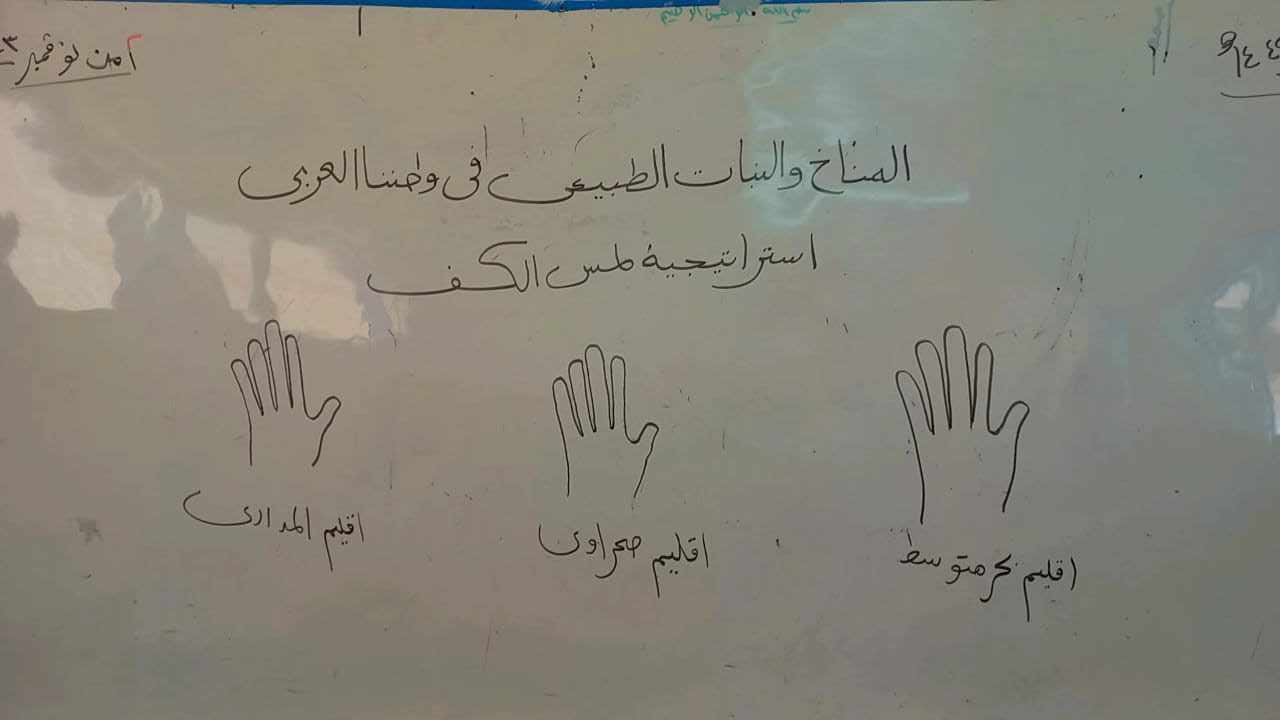 بسم الله الرحمن الرحيم
من نوفمبر
المناخ والنبات الطبيعى فى وطننا العربى
استراتيجية لمس الكف
اقليم بحر متوسط
اقليم صحراوى
اقليم المدارى